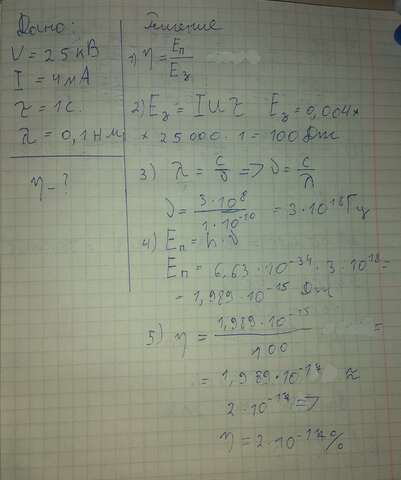 Дано:
U = 25 кВ
I = 4 мА
τ = 1 с.
λ = 0,1 нм
η - ?
Решение
1) η = Eп / Eз
2) Eз = I U τ Eз = 0,004 ×
× 25 000 · 1 = 100 Дж
3) λ = c/ν => ν = c/λ
ν = 3 · 10⁸ / 1 · 10⁻¹⁰ = 3 · 10¹⁸ Гц
4) Eп = h · ν
Eп = 6,63 · 10⁻³⁴ · 3 · 10¹⁸ =
= 1,989 · 10⁻¹⁵ Дж
5) η = 1,989 · 10⁻¹⁵ / 100 =
= 1,989 · 10⁻¹⁷ ≈
2 · 10⁻¹⁷ =>
η = 2 · 10⁻¹⁷ %